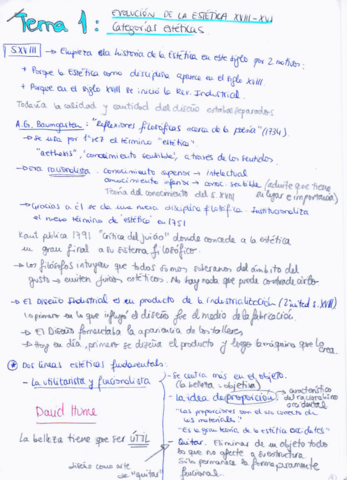 EVOLUCIÓN DE LA ESTÉTICA XVIII-XIX
Tema 1: Categorías estéticas
S XVIII → Empieza la historia de la Estética en este siglo por 2 motivos:
+ Porque la Estética como disciplina aparece en el siglo XVIII
+ Porque en el siglo XVIII se inició la Rev. Industrial.
Todavía la calidad y cantidad del diseño estaban separados
A.G. Baumgarten: "Reflexiones filosóficas acerca de la poesía" (1734).
→ Se usa por 1ª vez el término "estética".
"aethetis", 'conocimiento sensible', a través de los sentidos.
→ Era racionalista: conocimiento superior → intelectual
conocimiento inferior → conoc. sensible (admite que tiene
Teoría del conocimiento del s. XVIII su lugar e importancia)
→ Gracias a él se da una nueva disciplina filosófica. Institucionaliza
el nuevo término de 'estética' en 1751
Kant publica 1791 "Crítica del juicio" donde concede a la estética
un gran final a su sistema filosófico.
→ Los filósofos intuyen que todos somos soberanos del ámbito del
gusto → emiten juicios estéticos. No hay nada que pueda contradecirlo
→ El Diseño Industrial es un producto de la industrialización (2ª mitad s. XVIII)
Lo primero en lo que influyó el diseño fue el medio de la fabricación
→ El Diseño fomentaba la apariencia de los talleres.
→ Hoy en día, primero se diseña el producto y luego la máquina que lo crea.
Dos líneas estéticas fundamentales:
- La utilitarista y funcionalista
David Hume
La belleza tiene que ser ÚTIL
diseño como arte de "quitar"
- Se centra más en el objeto.
(la belleza = objetiva)
- La idea de proporción: características del racionalismo occidental
"Las proporciones son el instrumento de
los materiales"
"Es la gran teoría de la estética occidental"
- Quitar. Eliminar de un objeto todo
lo que no afecte a su estructura.
Sólo permanece la forma puramente
funcional.